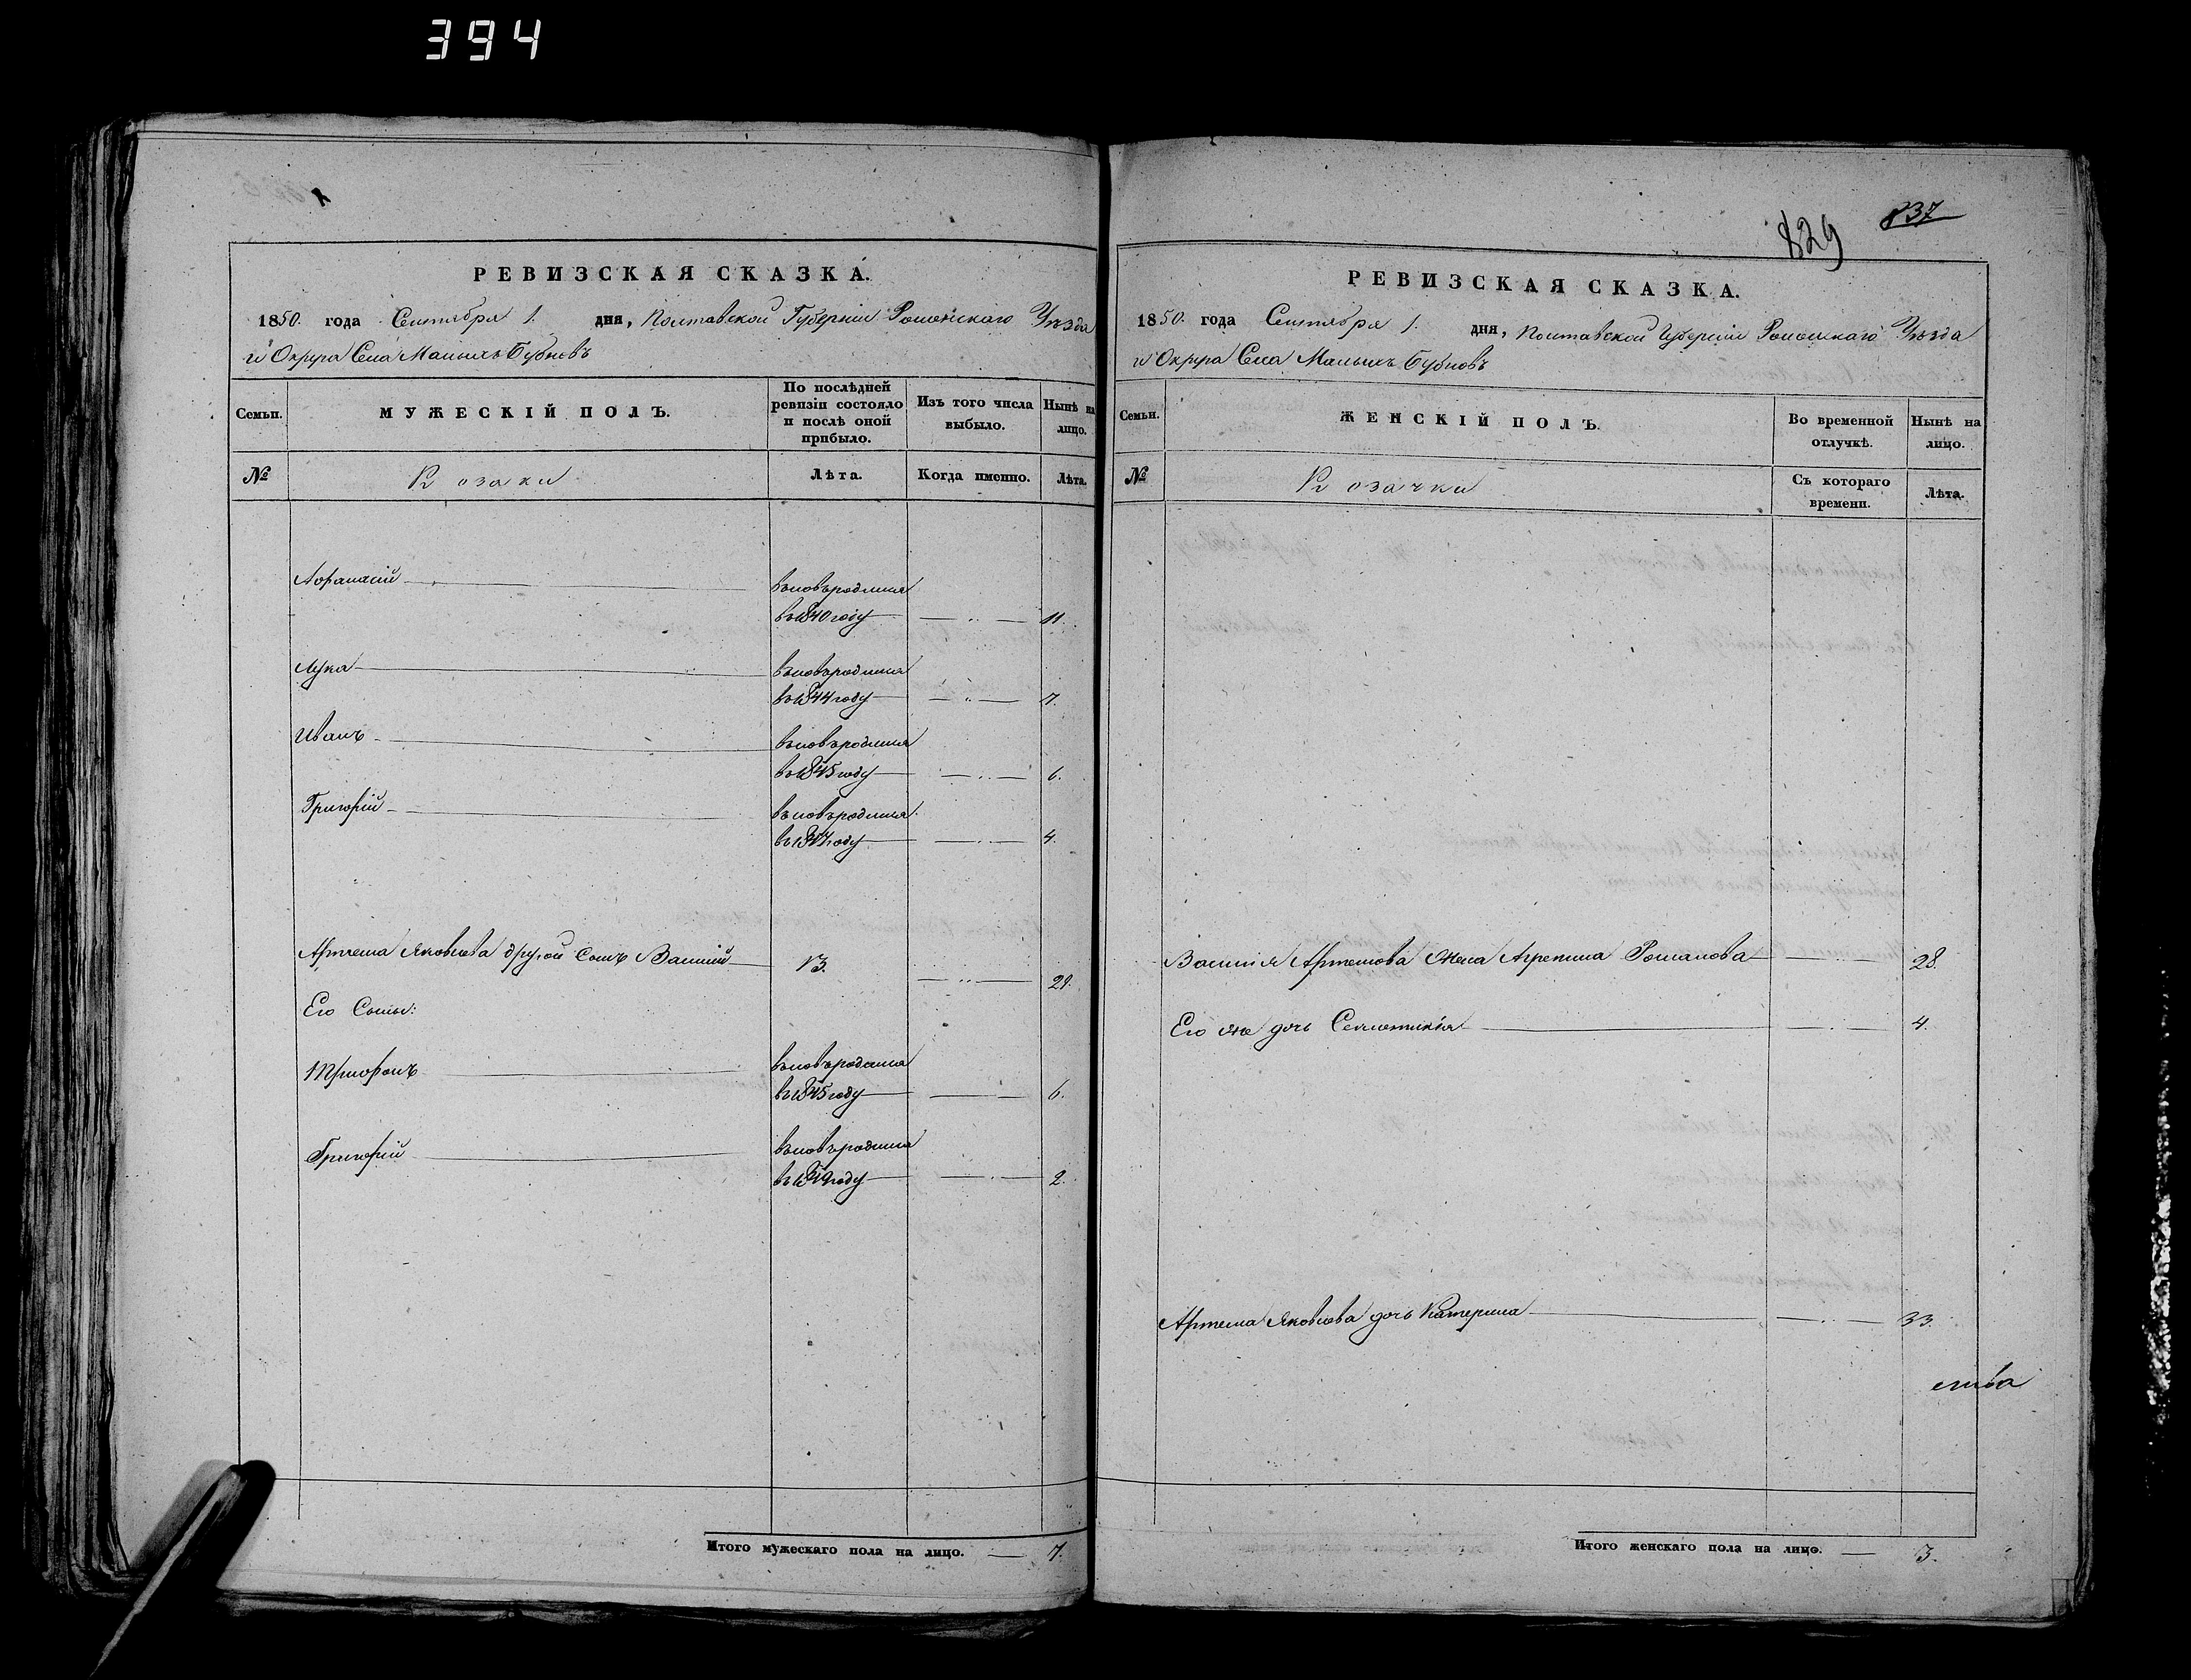 394
РЕВИЗСКАЯ СКАЗКА.
1850. года Сентября 1. дня, Полтавской Губернии Роменскаго Уезда
и Округа Села Малыхъ Бубновъ
Семьи. МУЖЕСКІЙ ПОЛЪ. По послѣдней ревизіи состояло и послѣ оной прибыло. Изъ того числа выбыло. Нынѣ на лицо.
№ Козаки Лѣта. Когда именно. Лѣта.
Афанасий вновърожденъ
въ 1840 году 11.
Лука вновърожденъ
въ 1844 году 7.
Иванъ вновърожденъ
въ 1845 году 6.
Григорій вновърожденъ
въ 1847 году 4.
Артема Яковлева другой Сынъ Василий 13. 29.
Его Сыны:
Трифонъ вновърожденъ
въ 1845 году 6.
Григорій вновърожденъ
въ 1849 году 2.
Итого мужескаго пола на лицо. 7.
829 837
РЕВИЗСКАЯ СКАЗКА.
1850. года Сентября 1. дня, Полтавской Губерніи Роменскаго Уезда
и Округа Села Малыхъ Бубновъ
Семьи. ЖЕНСКІЙ ПОЛЪ. Во временной отлучкѣ. Нынѣ на лицо.
№ Козачки Съ котораго времени. Лѣта.
Василія Артемова Жена Агрепина Романова 28.
Его же дочь 4.
Артема Яковлева дочь Катерина 33.
Итого женскаго пола на лицо. 3.